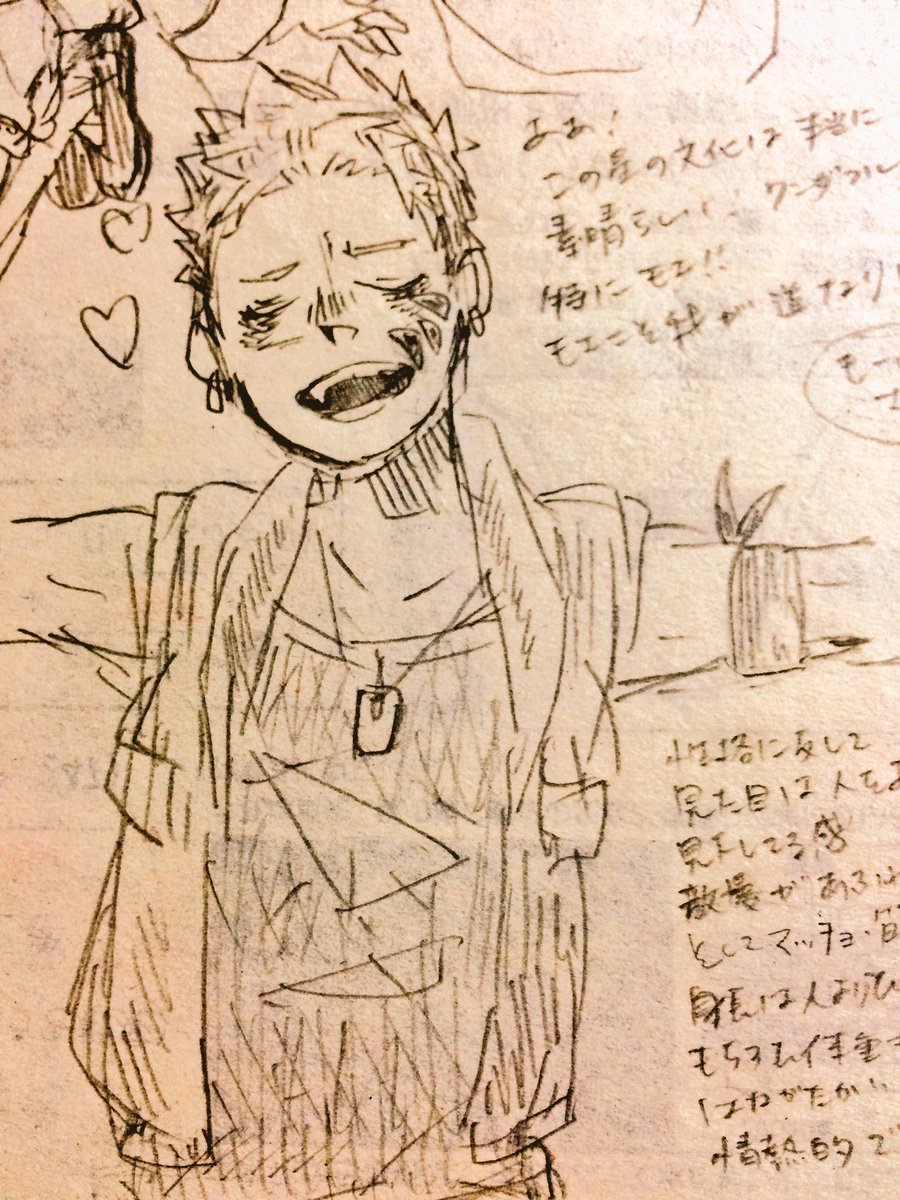 ああ!
この星の文化は本当に
素晴らしい!ワンダフル
特にモエ!!
モエこそ我が道なり!
モー
性格に反して
見た目は人を
見下してる感
散漫がある
としてマッチョ
身長は人より
もちろん体重
はねがたかい
情熱的で